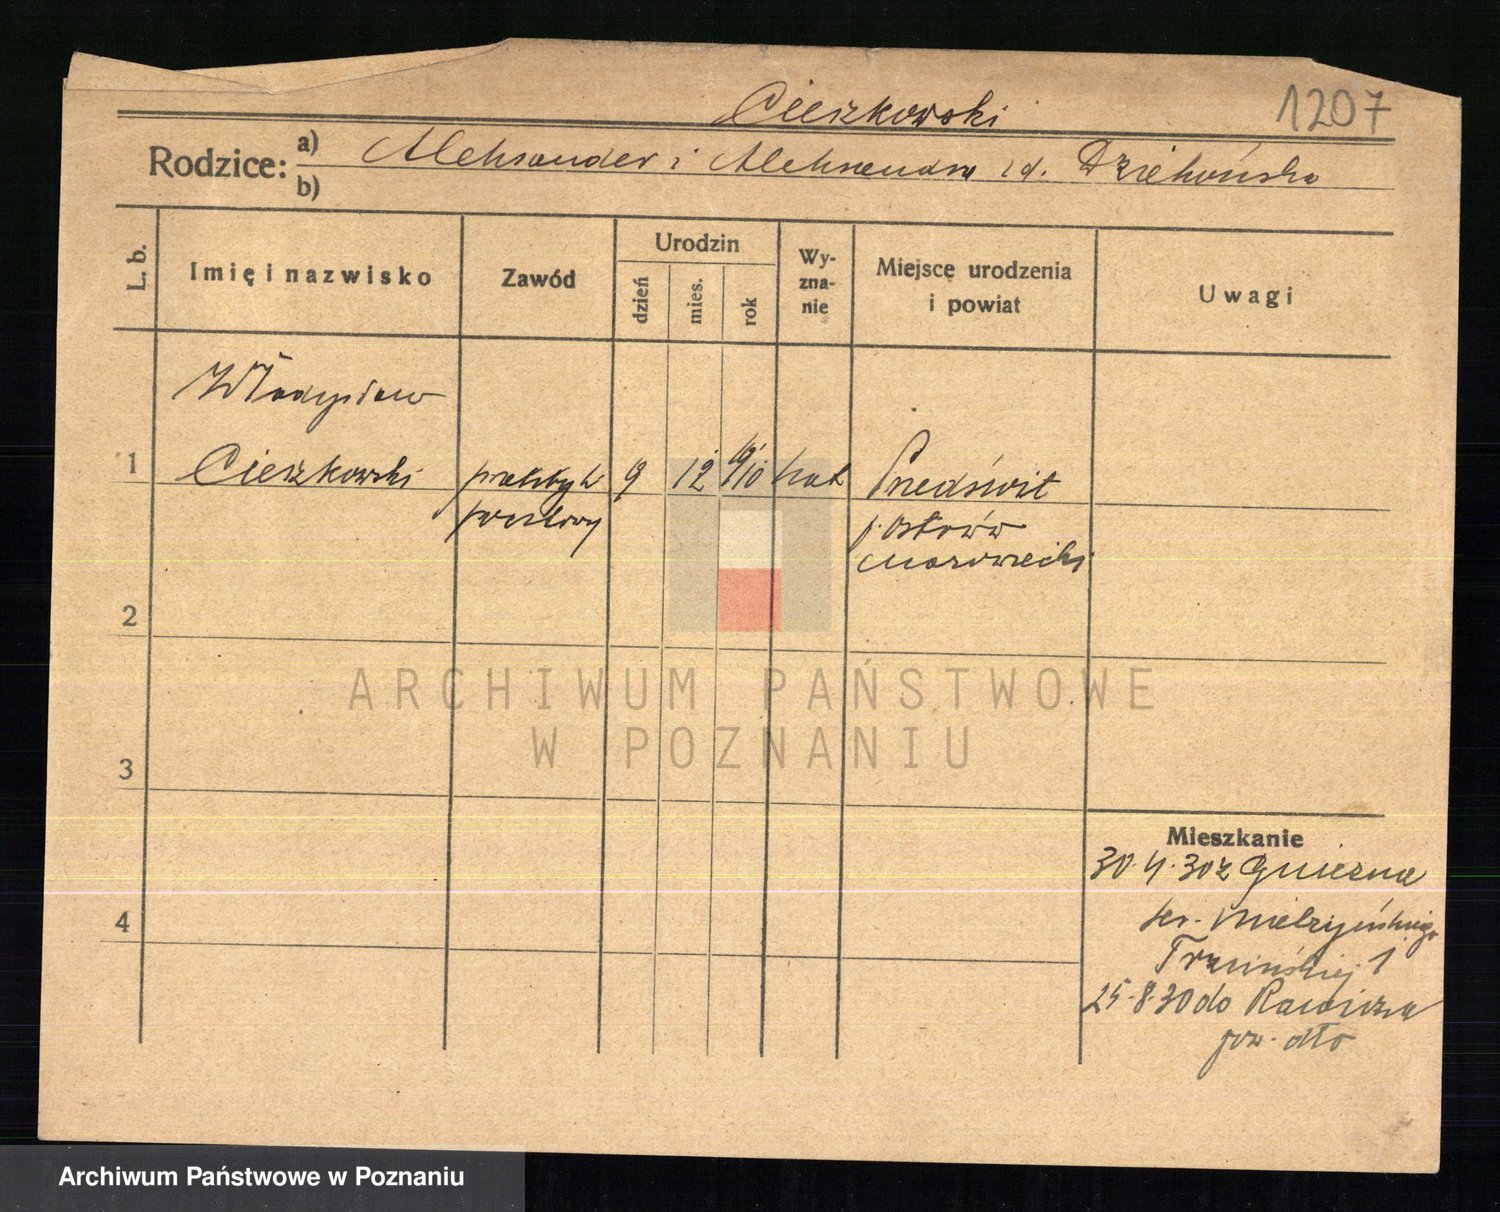 Cieszkowski
1207
Rodzice: a) Aleksander i Aleksandra zd. Dziekońska
b)
L. b.
Imię i nazwisko
Zawód
Urodzin
dzień
mies.
rok
Wy-
zna-
nie
Miejsce urodzenia
i powiat
Uwagi
Władysław
1 Cieszkowski praktyk 9 12 1910 kat Przedświt
pocztowy p. Ostrów
Mazowiecki
2
3
4
Mieszkanie
30.4.30 z Gniezna
Mielżyńskiego
Trzcińskiej 1
25.8.30 do Rawicza
pow. dto
ARCHIWUM PAŃSTWOWE
W POZNANIU
Archiwum Państwowe w Poznaniu